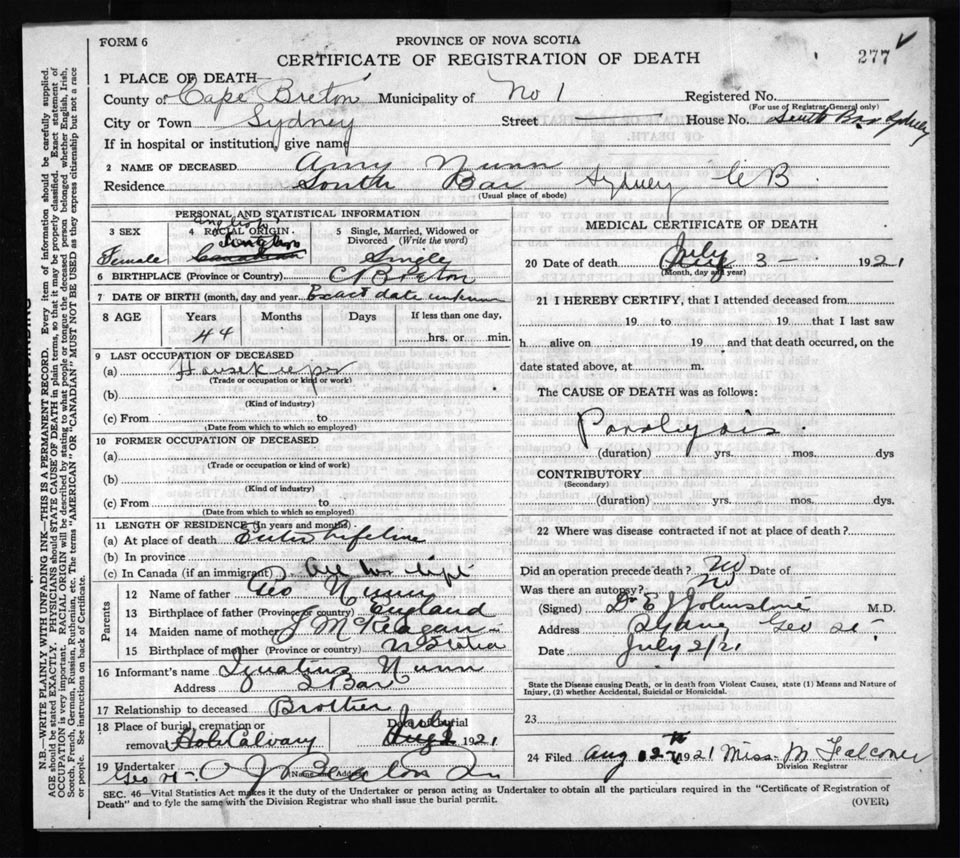 FORM 6
PROVINCE OF NOVA SCOTIA
CERTIFICATE OF REGISTRATION OF DEATH
277
1 PLACE OF DEATH—
County of Cape Breton Municipality of No 1 Registered No.
(For use of Registrar-General only)
City or Town Sydney Street House No. South Bar Sydney
If in hospital or institution, give name
2 NAME OF DECEASED Amy Nunn
Residence South Bar Sydney C B
(Usual place of abode)
PERSONAL AND STATISTICAL INFORMATION
3 SEX Female
4 RACIAL ORIGIN.
5 Single, Married, Widowed or Divorced (Write the word) Single
6 BIRTHPLACE (Province or Country) C Breton
7 DATE OF BIRTH (month, day and year) Exact date unknown
8 AGE Years 44 Months Days If less than one day, hrs. or min.
9 LAST OCCUPATION OF DECEASED
(a) Housekeeper
(Trade or occupation or kind or work)
(b)
(Kind of industry)
(c) From to
(Date from which to which so employed)
10 FORMER OCCUPATION OF DECEASED
(a)
(Trade or occupation or kind of work)
(b)
(Kind of industry)
(c) From to
(Date from which to which so employed)
11 LENGTH OF RESIDENCE (In years and months)
(a) At place of death Entire lifetime
(b) In province
(c) In Canada (if an immigrant)
Parents
12 Name of father Geo Nunn
13 Birthplace of father (Province or country) England
14 Maiden name of mother J McKeagan
15 Birthplace of mother (Province or country) N Scotia
16 Informant's name Ignatius Nunn
Address S Bar
17 Relationship to deceased Brother
18 Place of burial, cremation or removal Holy Calvary Date of burial July 1921
19 Undertaker
Name Address
Geo St
MEDICAL CERTIFICATE OF DEATH
20 Date of death July 3 — 1921
(Month, day and year)
21 I HEREBY CERTIFY, that I attended deceased from
19 to 19 that I last saw
h alive on 19 and that death occurred, on the
date stated above, at m.
The CAUSE OF DEATH was as follows:
Paralysis.
(duration) yrs. mos. dys
CONTRIBUTORY
(Secondary)
(duration) yrs. mos. dys.
22 Where was disease contracted if not at place of death?
Did an operation precede death? No Date of
Was there an autopsy? No
(Signed) Dr E J Johnstone M.D.
Address Sydney Geo St
Date July 2/21
State the Disease causing Death, or in death from Violent Causes, state (1) Means and Nature of
Injury, (2) whether Accidental, Suicidal or Homicidal.
23
24 Filed Aug 1921 Miss M Falconer
Division Registrar
SEC. 46—Vital Statistics Act makes it the duty of the Undertaker or person acting as Undertaker to obtain all the particulars required in the "Certificate of Registration of
Death" and to fyle the same with the Division Registrar who shall issue the burial permit.
(OVER)
N.B.—WRITE PLAINLY WITH UNFADING INK—THIS IS A PERMANENT RECORD. Every item of information should be carefully supplied.
AGE should be stated EXACTLY. PHYSICIANS should STATE CAUSE OF DEATH in plain terms, so that it may be properly classified. Exact statement of
OCCUPATION is very important. RACIAL ORIGIN will be described by stating to what people or tongue the deceased person belonged whether English, Irish,
Scotch, French, German, Russian, Ruthenian, etc. The terms "AMERICAN" OR "CANADIAN" MUST NOT BE USED as they express citizenship but not a race
or people. See instructions on back of Certificate.